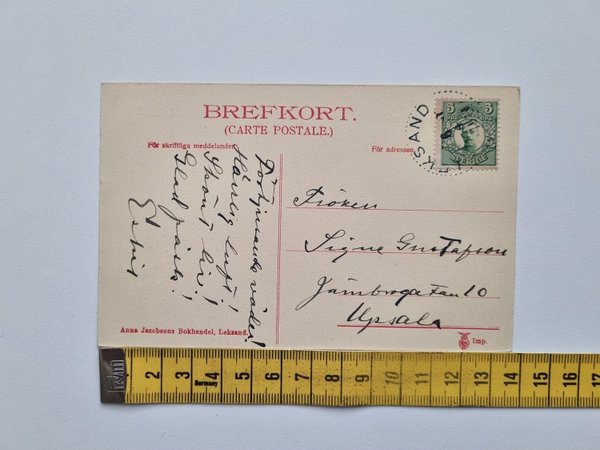 BREFKORT.
(CARTE POSTALE.)
För skriftliga meddelanden
För adressen
LEKSAND
5 5
SVERIGE
Förtjusande väder!
Härlig luft!
Skönt liv!
Glad påsk!
Fröken
Signe Gustafson
Upsala
Anna Jacobsons Bokhandel, Leksand.
Imp.
1 2 3 4 5 6 7 8 9 10 11 12 13 14 15 16 17
Germany